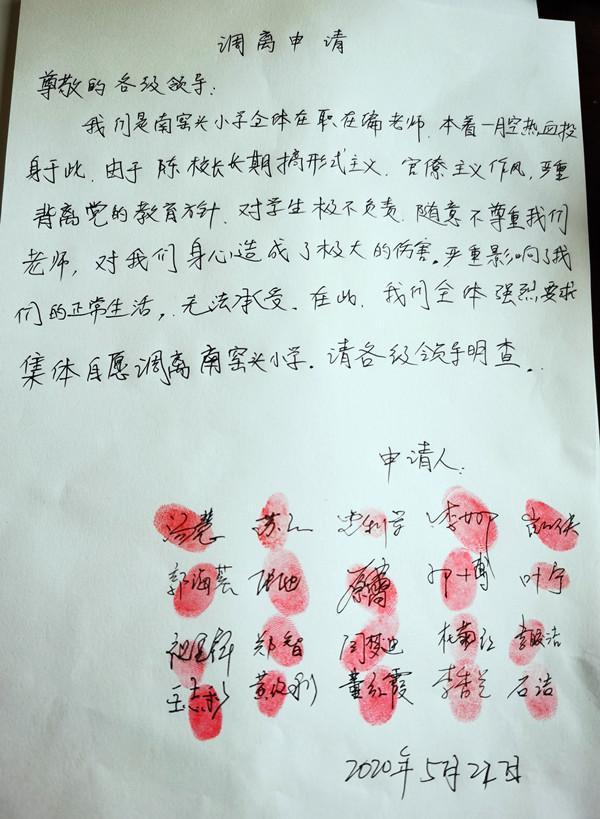 调离申请
尊敬的各级领导:
我们是南窑头小学全体在职在编老师.本着一腔热血投
身于此.由于陈校长长期搞形式主义.官僚主义作风,严重
背离党的教育方针.对学生极不负责.随意不尊重我们
老师,对我们身心造成了极大的伤害。严重影响了我
们的正常生活,.无法承受.在此.我们全体强烈要求
集体自愿调离南窑头小学.请各级领导明查..
申请人:
郭海芸 叶宁
郑智 闫梦迪 杜菊红
董红霞 李杏兰 石洁
2020年5月21日